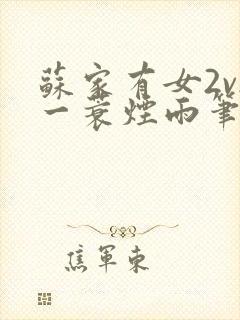 蘇家有女2v
一蓑煙雨筆
焦軍東